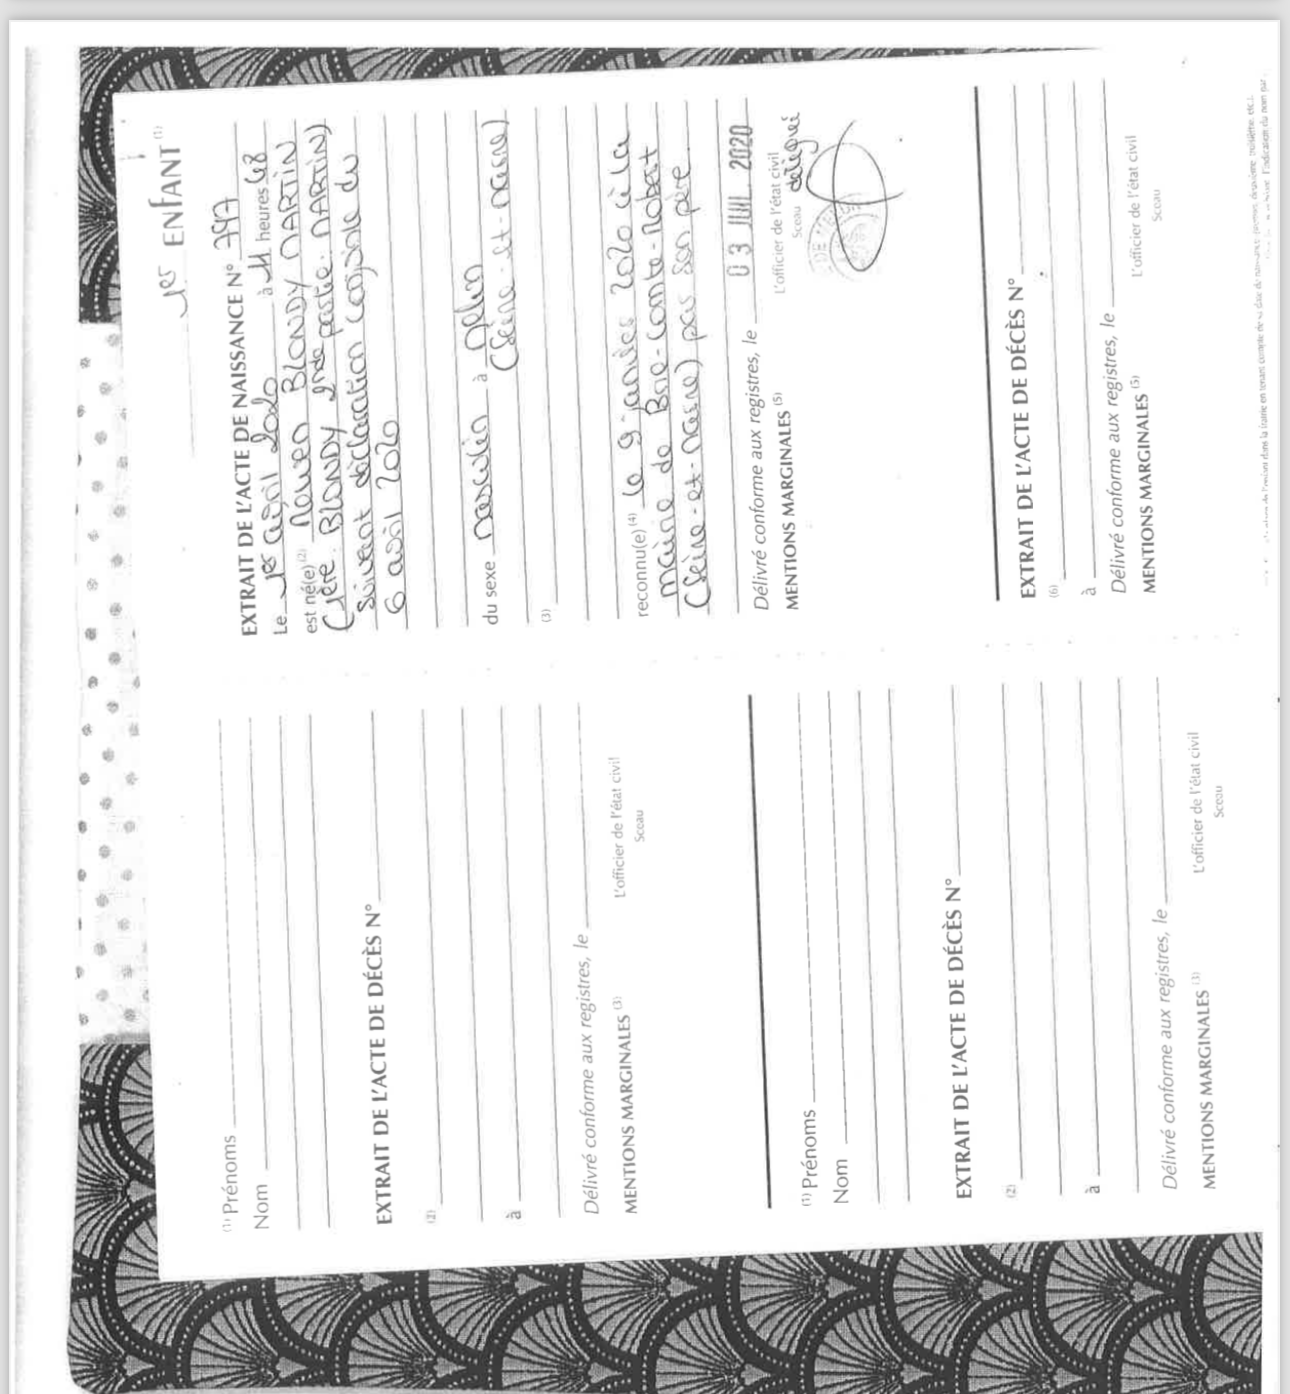 1er ENFANT (1)
EXTRAIT DE L'ACTE DE NAISSANCE N° 797
Le 1er avril 2020 à 11 heures 48
est né(e) (2) BLONDY MARTIN
(1ère: BLONDY 2nde partie: MARTIN)
suivant déclaration conjointe du
6 avril 2020
du sexe masculin à Melun
(Seine-et-Marne)
(3)
reconnu(e) (4) le 9 janvier 2020 à la
mairie de Brie-Comte-Robert
(Seine-et-Marne) par son père
Délivré conforme aux registres, le 03 JUIL. 2020
MENTIONS MARGINALES (5)
L'officier de l'état civil
Sceau délégué
DE MELUN
EXTRAIT DE L'ACTE DE DÉCÈS N°
(6)
à
Délivré conforme aux registres, le
MENTIONS MARGINALES (5)
L'officier de l'état civil
Sceau
(1) Prénoms
Nom
EXTRAIT DE L'ACTE DE DÉCÈS N°
(2)
à
Délivré conforme aux registres, le
MENTIONS MARGINALES (3)
L'officier de l'état civil
Sceau
(1) Prénoms
Nom
EXTRAIT DE L'ACTE DE DÉCÈS N°
(2)
à
Délivré conforme aux registres, le
MENTIONS MARGINALES (3)
L'officier de l'état civil
Sceau